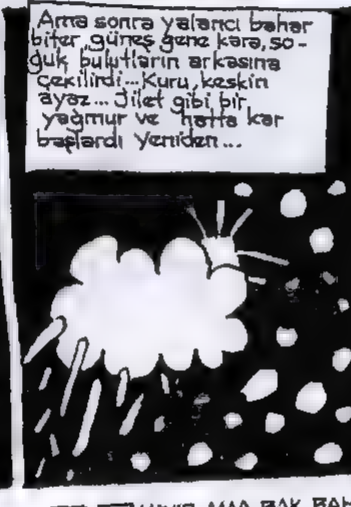 Ama sonra yalancı bahar
biter, güneş gene kara, so-
ğuk bulutların arkasına
çekilirdi... Kuru, keskin
ayaz... Jilet gibi bir
yağmur ve hatta kar
başlardı yeniden...
AMA BAK BAH